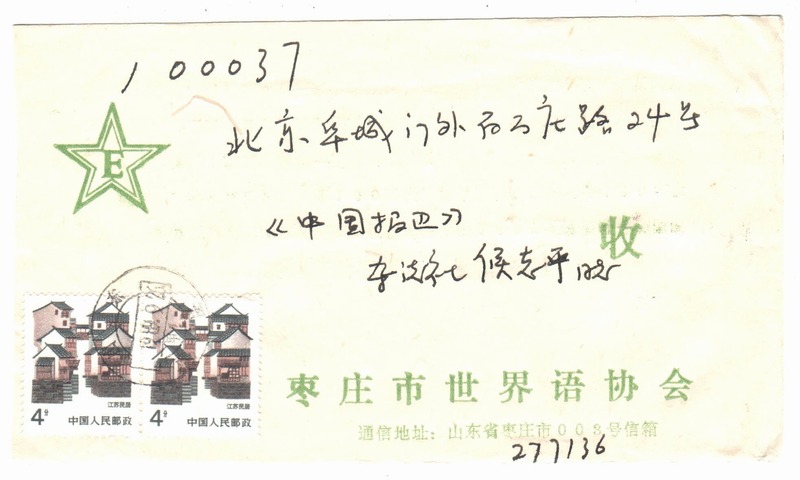 100037
E
北京阜城门外百万庄路24号
《中国报道》
收
杂志社 侯志平 同志
江苏民居
江苏民居
4分 中国人民邮政
4分 中国人民邮政
枣庄市世界语协会
通信地址：山东省枣庄市003号信箱
277136